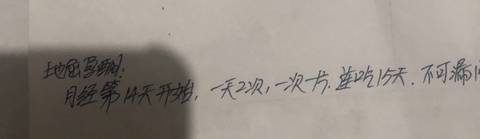 地屈孕酮:
月经第14天开始,一天2次,一次一片.连吃15天.不可漏